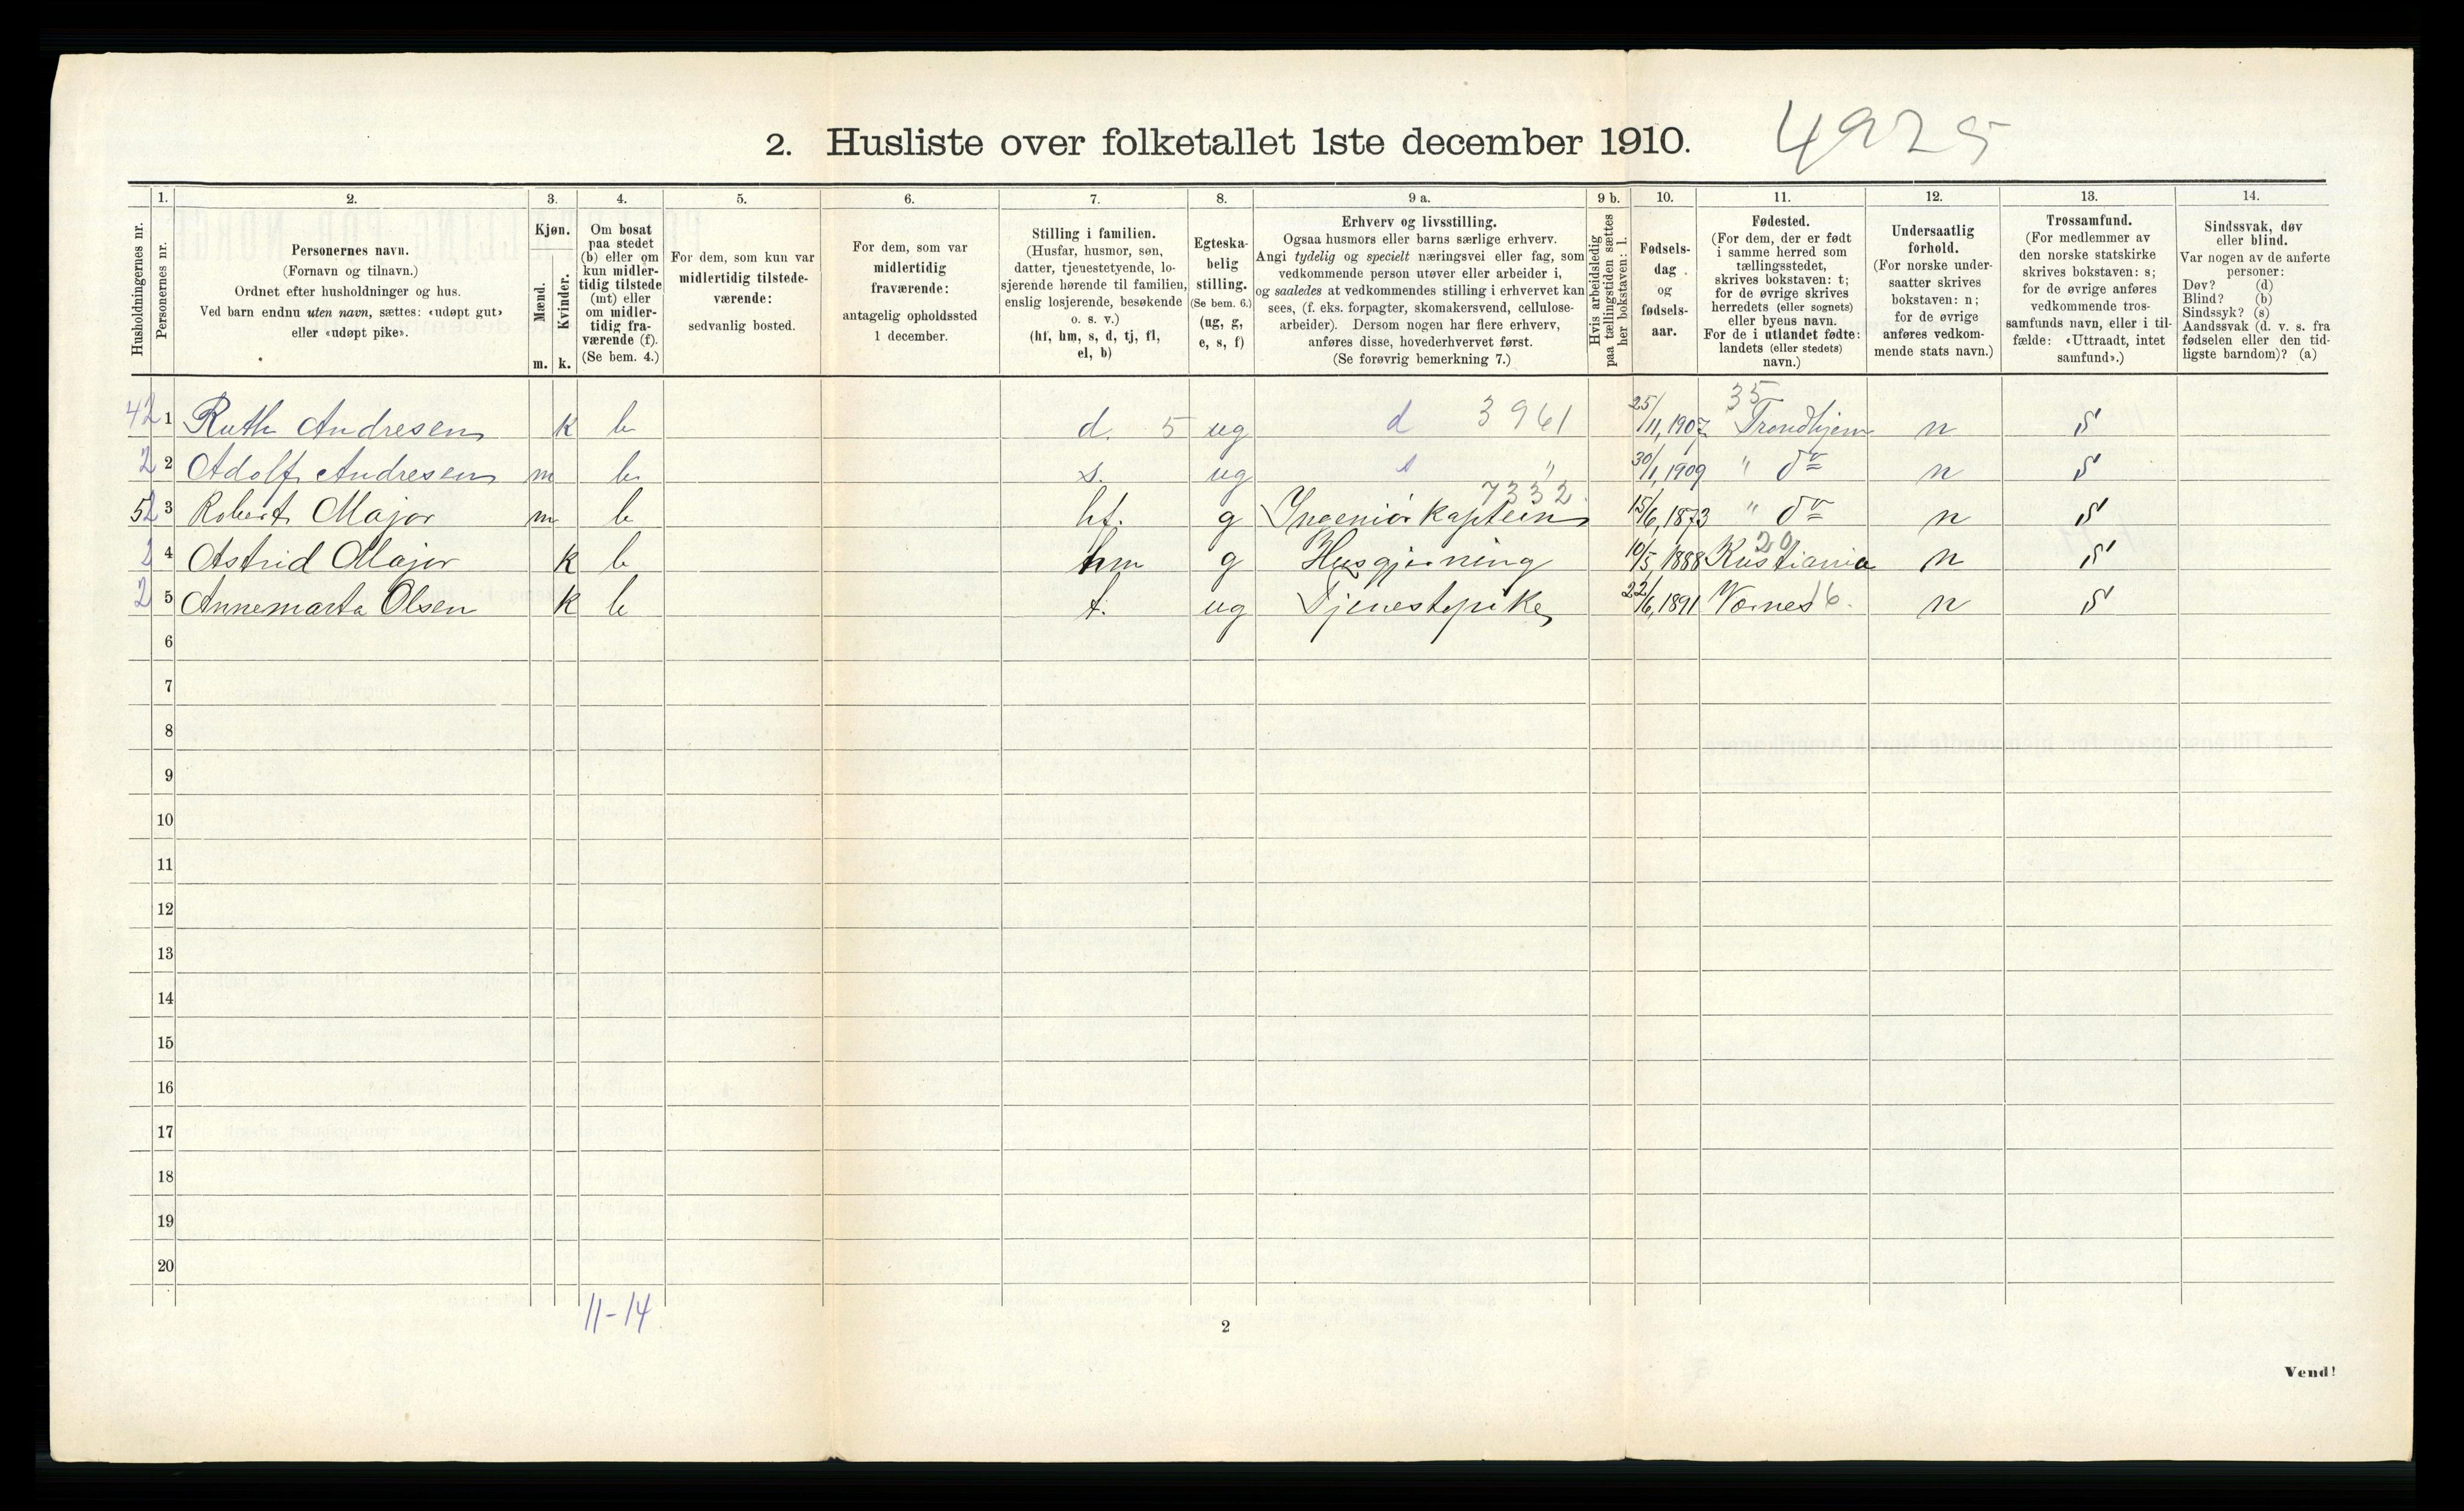 2. Husliste over folketallet 1ste december 1910. 4925
Husholdningernes nr.
1.
Personernes nr.
2.
Personernes navn.
(Fornavn og tilnavn.)
Ordnet efter husholdninger og hus.
Ved barn endnu uten navn, sættes: «udøpt gut»
eller «udøpt pike».
3.
Kjøn.
Mænd.
Kvinder.
m. k.
4.
Om bosat
paa stedet
(b) eller om
kun midler-
tidig tilstede
(mt) eller
om midler-
tidig fra-
værende (f).
(Se bem. 4.)
5.
For dem, som kun var
midlertidig tilstede-
værende:
sedvanlig bosted.
6.
For dem, som var
midlertidig
fraværende:
antagelig opholdssted
1 december.
7.
Stilling i familien.
(Husfar, husmor, søn,
datter, tjenestetyende, lo-
sjerende hørende til familien,
enslig losjerende, besøkende
o. s. v.)
(hf, hm, s, d, tj, fl,
el, b)
8.
Egteska-
belig
stilling.
(Se bem. 6.)
(ug, g,
e, s, f)
9 a.
Erhverv og livsstilling.
Ogsaa husmors eller barns særlige erhverv.
Angi tydelig og specielt næringsvei eller fag, som
vedkommende person utøver eller arbeider i,
og saaledes at vedkommendes stilling i erhvervet kan
sees, (f. eks. forpagter, skomakersvend, cellulose-
arbeider). Dersom nogen har flere erhverv,
anføres disse, hovederhvervet først.
(Se forøvrig bemerkning 7.)
9 b.
Hvis arbeidsledig
paa tællingstiden sættes
her bokstaven: l.
10.
Fødsels-
dag
og
fødsels-
aar.
11.
Fødested.
(For dem, der er født
i samme herred som
tællingsstedet,
skrives bokstaven: t;
for de øvrige skrives
herredets (eller sognets)
eller byens navn.
For de i utlandet fødte:
landets (eller stedets)
navn.)
12.
Undersaatlig
forhold.
(For norske under-
saatter skrives
bokstaven: n;
for de øvrige
anføres vedkom-
mende stats navn.)
13.
Trossamfund.
(For medlemmer av
den norske statskirke
skrives bokstaven: s;
for de øvrige anføres
vedkommende tros-
samfunds navn, eller i til-
fælde: «Uttraadt, intet
samfund».)
14.
Sindssvak, døv
eller blind.
Var nogen av de anførte
personer:
Døv? (d)
Blind? (b)
Sindssyk? (s)
Aandssvak (d. v. s. fra
fødselen eller den tid-
ligste barndom)? (a)
42 1 Ruth Andresen k b d. 5 ug d 3961 25/11, 1907 35 Trondhjem n S
2 2 Adolf Andresen m b s. ug s " 30/1, 1909 " do n S
52 3 Robert Major m b hf. g Ingeniörkaptein 7332. 15/6, 1873 " do n S
2 4 Astrid Major k b hm g Husgjerning 10/5, 1888 20 Kristiania n S
2 5 Annemarta Olsen k b t. ug Tjenestepike 22/6, 1891 Værnes 16. n S
6
7
8
9
10
11
12
13
14
15
16
17
18
19
20
11-14
2
Vend!